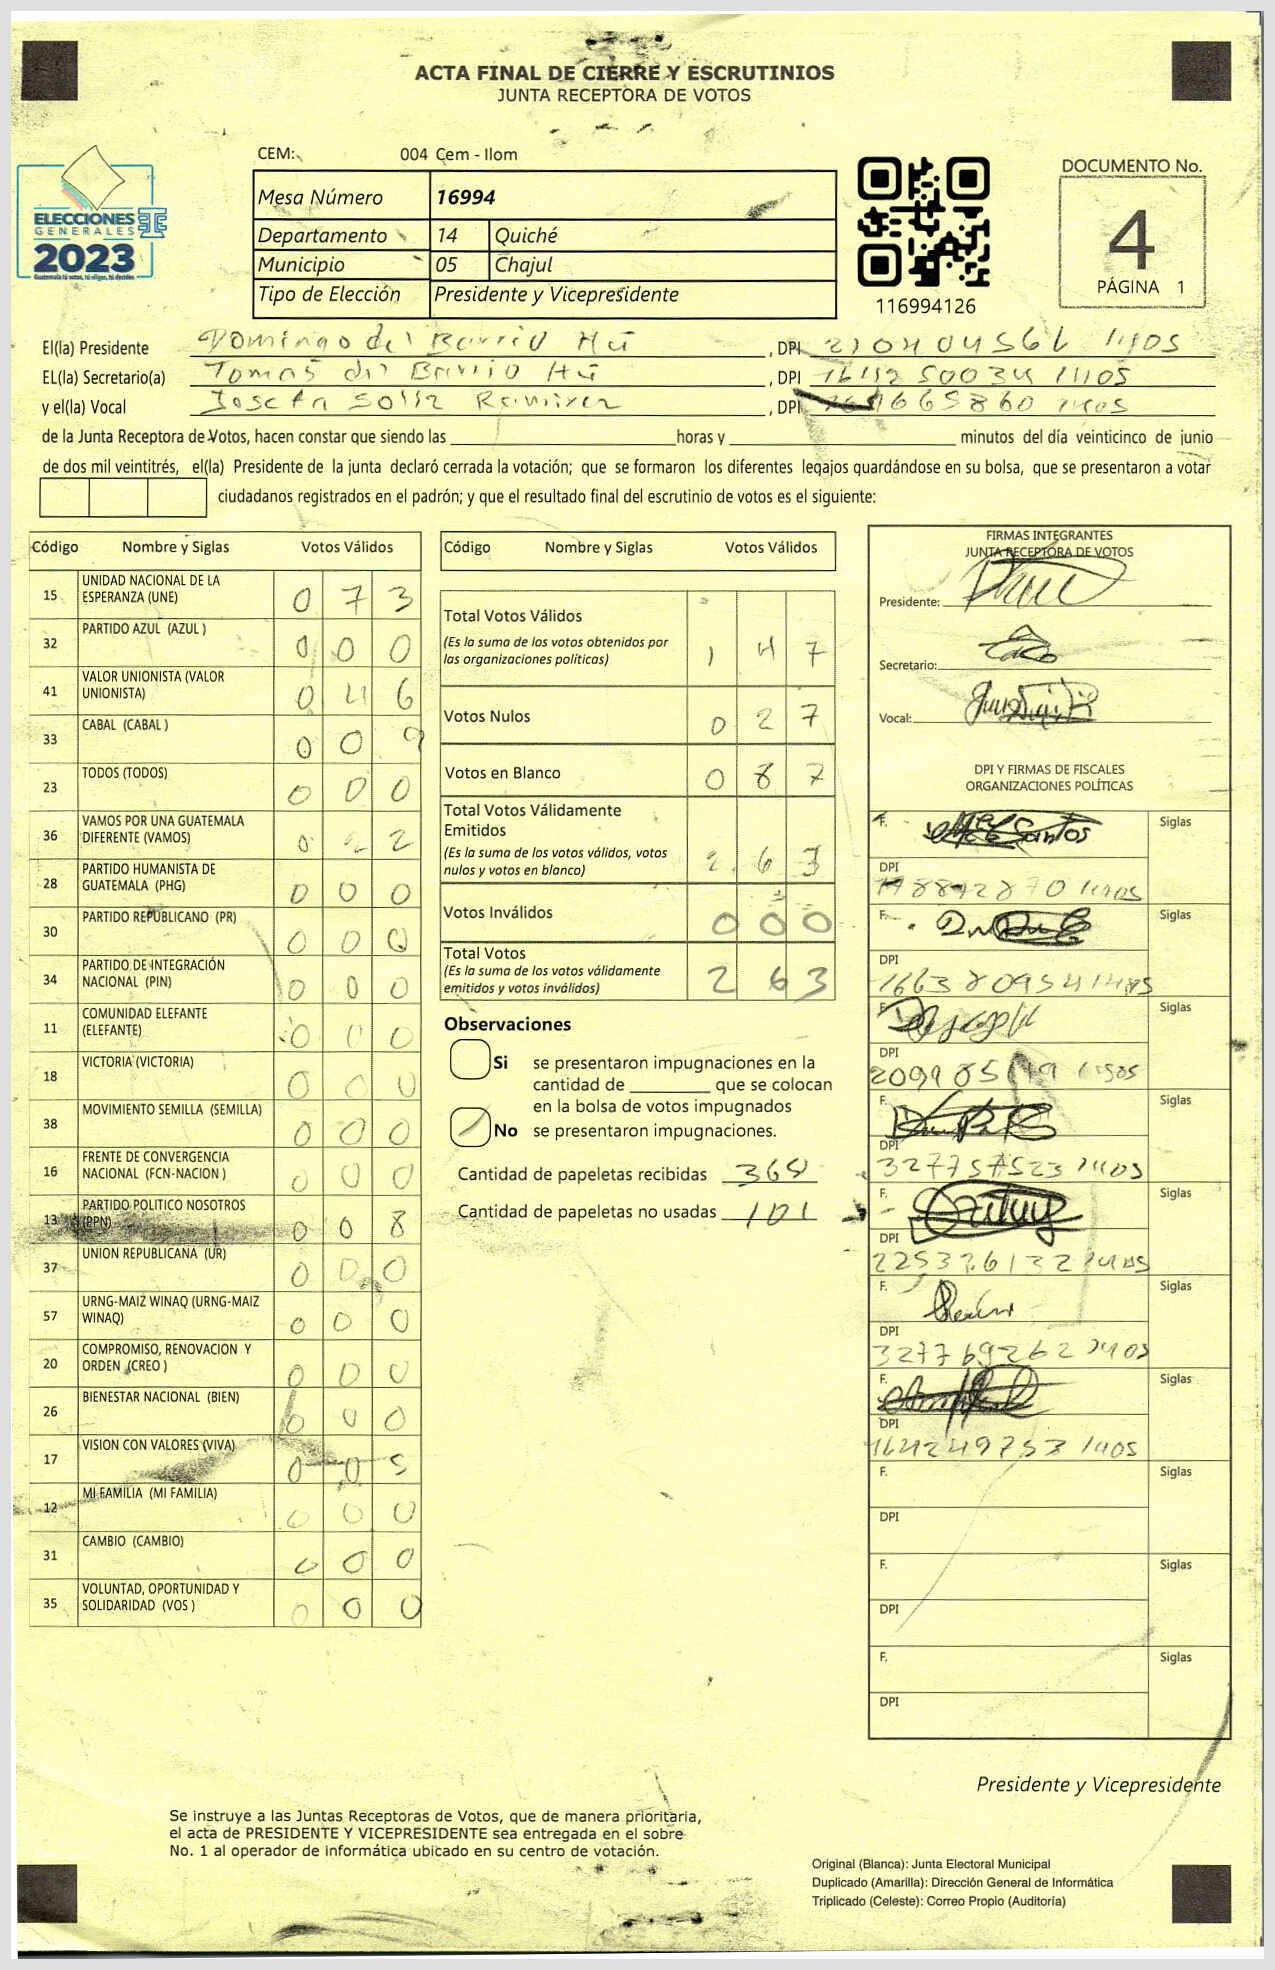 ACTA FINAL DE CIERRE Y ESCRUTINIOS
JUNTA RECEPTORA DE VOTOS
CEM: 004 Cem - Ilom
ELECCIONES
GENERALES
2023
Guatemala tú votas, tú eliges, tú decides
Mesa Número 16994
Departamento 14 Quiché
Municipio 05 Chajul
Tipo de Elección Presidente y Vicepresidente
116994126
DOCUMENTO No.
4
PÁGINA 1
El(la) Presidente Domingo del Barrio Hú , DPI
EL(la) Secretario(a) Tomas del Barrio Hú , DPI
y el(la) Vocal Josefa Solis Ramirez , DPI
de la Junta Receptora de Votos, hacen constar que siendo las horas y minutos del día veinticinco de junio
de dos mil veintitrés, el(la) Presidente de la junta declaró cerrada la votación; que se formaron los diferentes legajos guardándose en su bolsa, que se presentaron a votar
ciudadanos registrados en el padrón; y que el resultado final del escrutinio de votos es el siguiente:
Código Nombre y Siglas Votos Válidos
15 UNIDAD NACIONAL DE LA ESPERANZA (UNE) 0 7 3
32 PARTIDO AZUL (AZUL ) 0 0 0
41 VALOR UNIONISTA (VALOR UNIONISTA) 0 4 6
33 CABAL (CABAL ) 0 0 9
23 TODOS (TODOS) 0 0 0
36 VAMOS POR UNA GUATEMALA DIFERENTE (VAMOS) 0 2 2
28 PARTIDO HUMANISTA DE GUATEMALA (PHG) 0 0 0
30 PARTIDO REPUBLICANO (PR) 0 0 0
34 PARTIDO DE INTEGRACIÓN NACIONAL (PIN) 0 0 0
11 COMUNIDAD ELEFANTE (ELEFANTE) 0 0 0
18 VICTORIA (VICTORIA) 0 0 0
38 MOVIMIENTO SEMILLA (SEMILLA) 0 0 0
16 FRENTE DE CONVERGENCIA NACIONAL (FCN-NACION ) 0 0 0
13 PARTIDO POLITICO NOSOTROS (PPN) 0 0 8
37 UNION REPUBLICANA (UR) 0 0 0
57 URNG-MAIZ WINAQ (URNG-MAIZ WINAQ) 0 0 0
20 COMPROMISO, RENOVACION Y ORDEN (CREO ) 0 0 0
26 BIENESTAR NACIONAL (BIEN) 0 0 0
17 VISION CON VALORES (VIVA) 0 0 5
12 MI FAMILIA (MI FAMILIA) 0 0 0
31 CAMBIO (CAMBIO) 0 0 0
35 VOLUNTAD, OPORTUNIDAD Y SOLIDARIDAD (VOS ) 0 0 0
Código Nombre y Siglas Votos Válidos
Total Votos Válidos
(Es la suma de los votos obtenidos por
las organizaciones políticas) 1 4 7
Votos Nulos 0 2 7
Votos en Blanco 0 8 7
Total Votos Válidamente
Emitidos
(Es la suma de los votos válidos, votos
nulos y votos en blanco) 2 6 3
Votos Inválidos 0 0 0
Total Votos
(Es la suma de los votos válidamente
emitidos y votos inválidos) 2 6 3
Observaciones
Si se presentaron impugnaciones en la
cantidad de que se colocan
en la bolsa de votos impugnados
No se presentaron impugnaciones.
Cantidad de papeletas recibidas
Cantidad de papeletas no usadas 101
FIRMAS INTEGRANTES
JUNTA RECEPTORA DE VOTOS
Presidente:
Secretario:
Vocal:
DPI Y FIRMAS DE FISCALES
ORGANIZACIONES POLÍTICAS
F. Siglas
DPI
F. Siglas
DPI
F. Siglas
DPI
F. Siglas
DPI
327757523 1405
F. Siglas
DPI
F. Siglas
DPI
327769262 1405
F. Siglas
DPI
F. Siglas
DPI
F. Siglas
DPI
F. Siglas
DPI
Presidente y Vicepresidente
Se instruye a las Juntas Receptoras de Votos, que de manera prioritaria,
el acta de PRESIDENTE Y VICEPRESIDENTE sea entregada en el sobre
No. 1 al operador de informática ubicado en su centro de votación.
Original (Blanca): Junta Electoral Municipal
Duplicado (Amarilla): Dirección General de Informática
Triplicado (Celeste): Correo Propio (Auditoría)